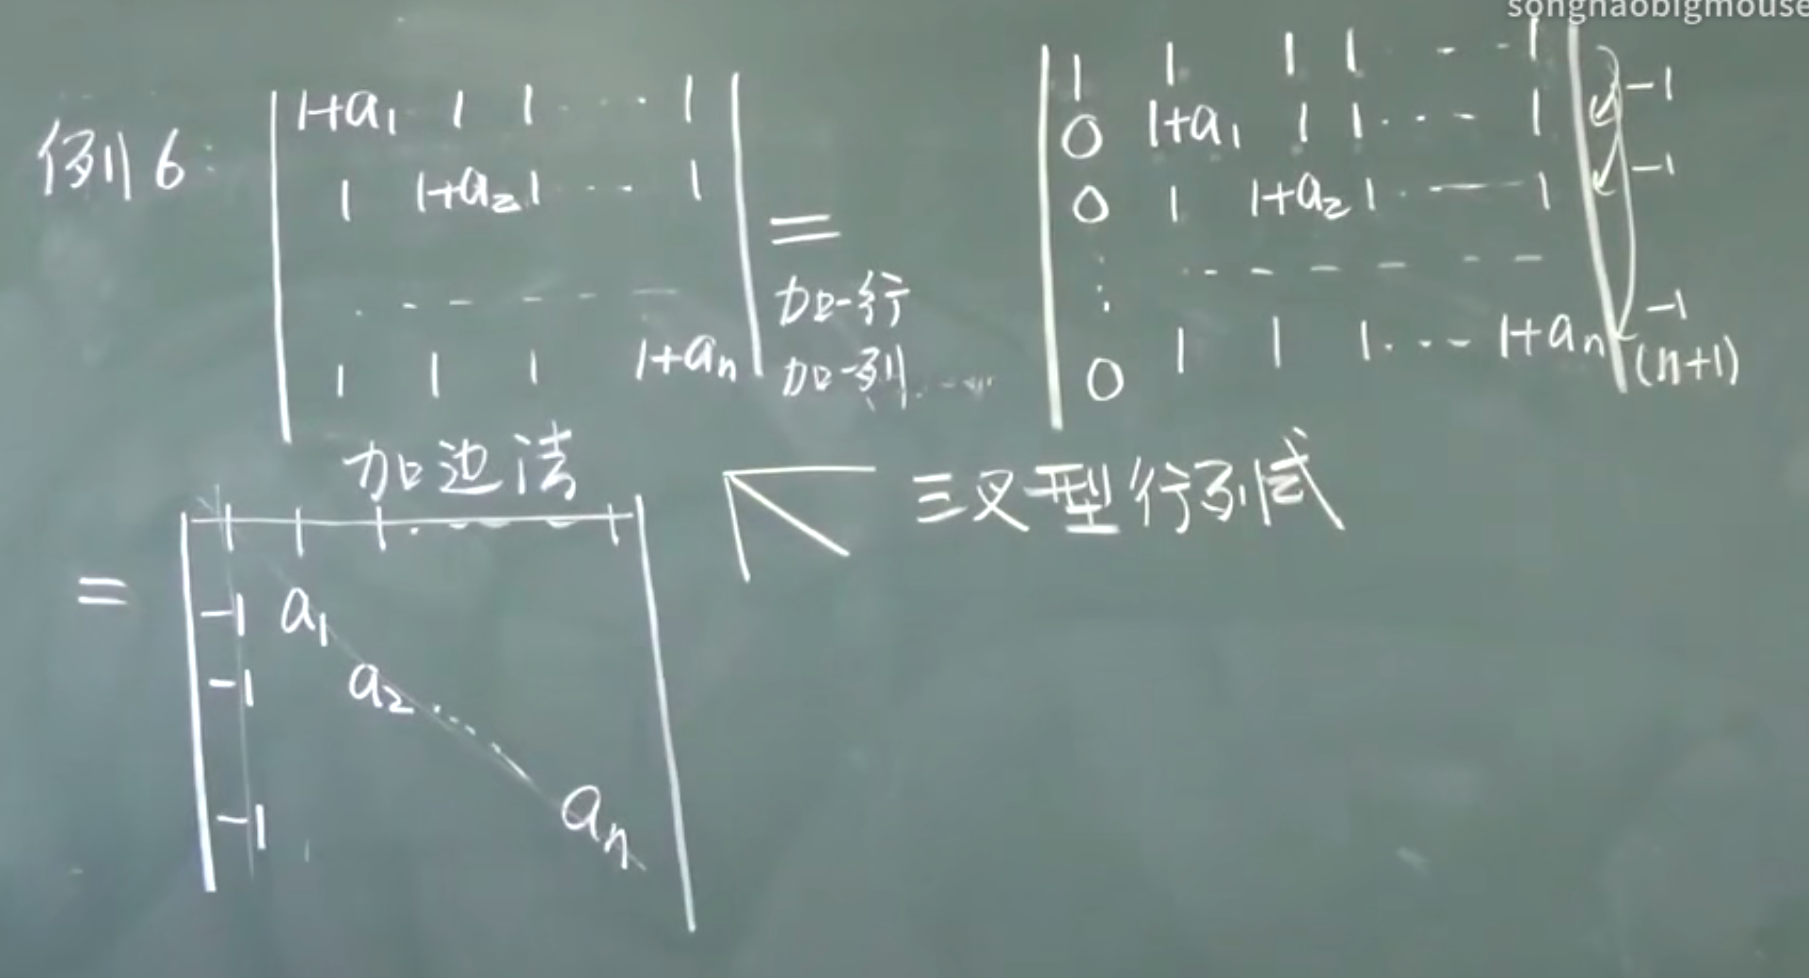 songhaobigmouse
例6
1+a₁ 1 1 ⋯ 1
1 1+a₂ 1 ⋯ 1
⋯
1 1 1 1+aₙ
=
加一行
加一列
1 1 1 1 ⋯ 1
0 1+a₁ 1 1 ⋯ 1
0 1 1+a₂ 1 ⋯ 1
⋮ ⋯
0 1 1 1 ⋯ 1+aₙ
-1
-1
-1
(n+1)
加边法
三叉型行列式
=
1 1 1 ⋯ 1
-1 a₁
-1 a₂ ⋯
-1 aₙ